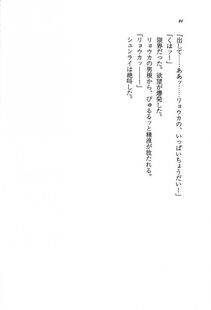 「出して……ああッ……リョウカの、いっぱいちょうだい！」
「くはッー！」
限界だった。欲望が爆発した。
リョウカの男根から、びゅるるッと精液が放たれる。
「リョウカッーー！」
シュンライは絶叫した。